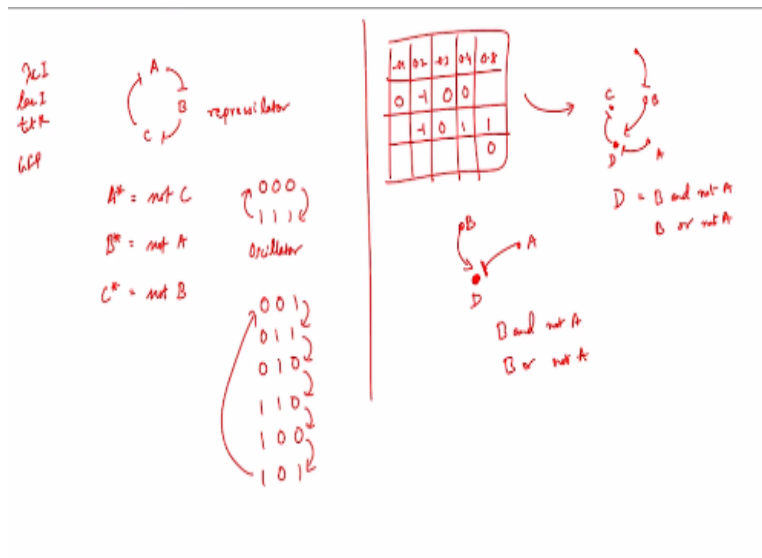 λcI
lacI
tetR
GFP
A
B
C
repressilator
A* = not C
B* = not A
C* = not B
0 0 0
1 1 1
Oscillator
0 0 1
0 1 1
0 1 0
1 1 0
1 0 0
1 0 1
0.2 0.4 0.8
0 -1 0 0
-1 0 1 1
0
C
B
D
A
D = B and not A
B or not A
B
A
D
B and not A
B or not A